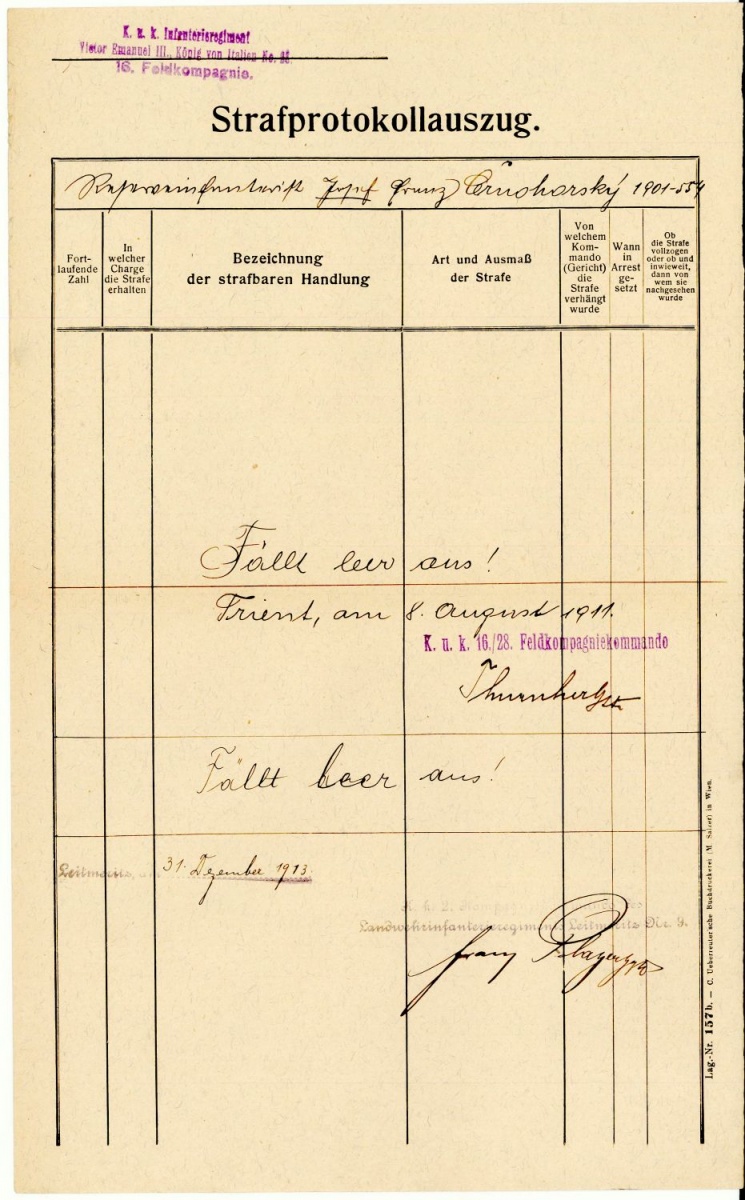 K. u. k. Infanterieregiment
Victor Emanuel III., König von Italien No. 28.
16. Feldkompagnie.
Strafprotokollauszug.
Reserveinfanterist Josef Franz Črnohorský 1901-554
Fort-
laufende
Zahl
In
welcher
Charge
die Strafe
erhalten
Bezeichnung
der strafbaren Handlung
Art und Ausmaß
der Strafe
Von
welchem
Kom-
mando
(Gericht)
die
Strafe
verhängt
wurde
Wann
in
Arrest
ge-
setzt
Ob
die Strafe
vollzogen
oder ob und
inwieweit,
dann von
wem sie
nachgesehen
wurde
Fällt leer aus!
Trient, am 8. August 1911.
K. u. k. 16./28. Feldkompagniekommando
Fällt leer aus!
Leitmeritz, am 31. Dezember 1913.
Landwehrinfanterieregiments Leitmeritz Nr. 9.
Franz
Lag.-Nr. 157b. — C. Ueberreuter'sche Buchdruckerei (M. Salzer) in Wien.